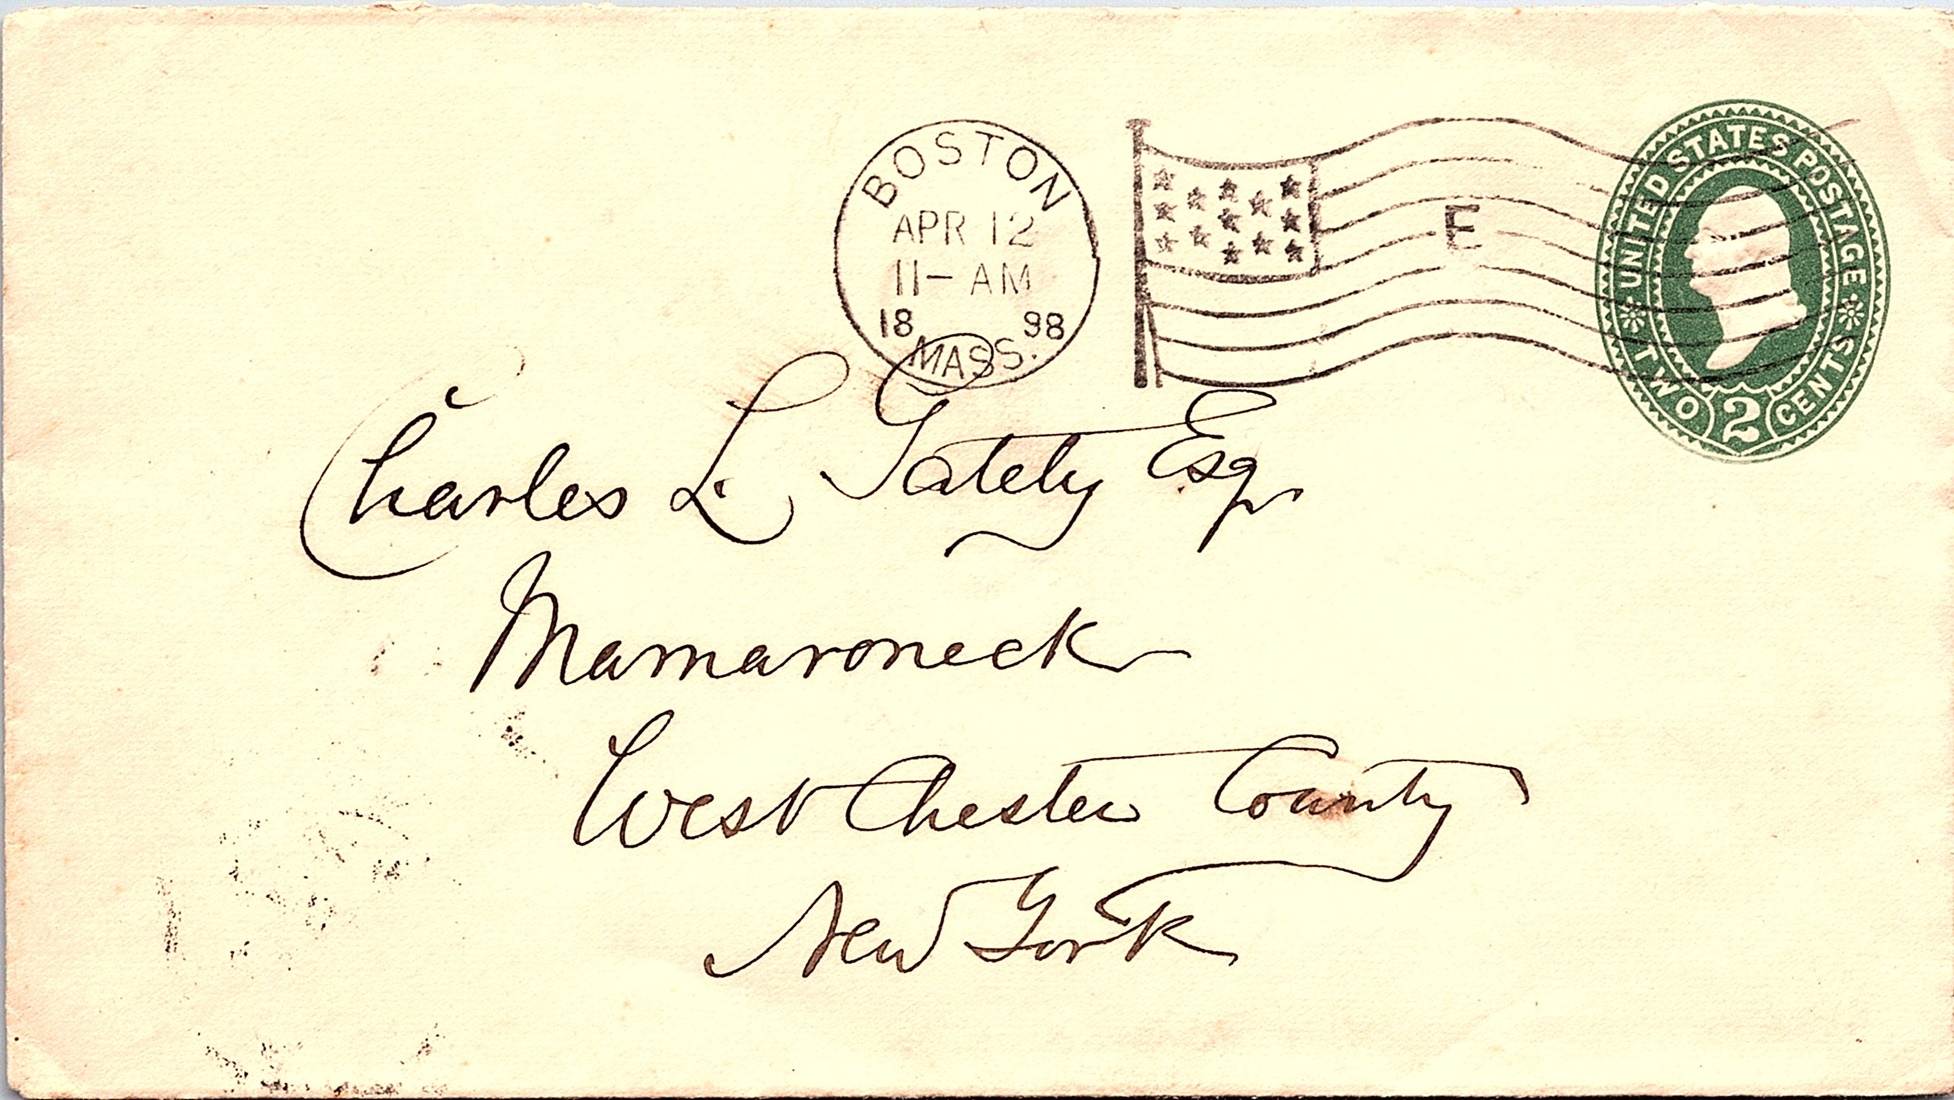 BOSTON
APR 12
11-AM
18 98
MASS.
E
UNITED STATES POSTAGE
TWO 2 CENTS
Charles L. Gately Esq
Mamaroneck
West Chester County
New York